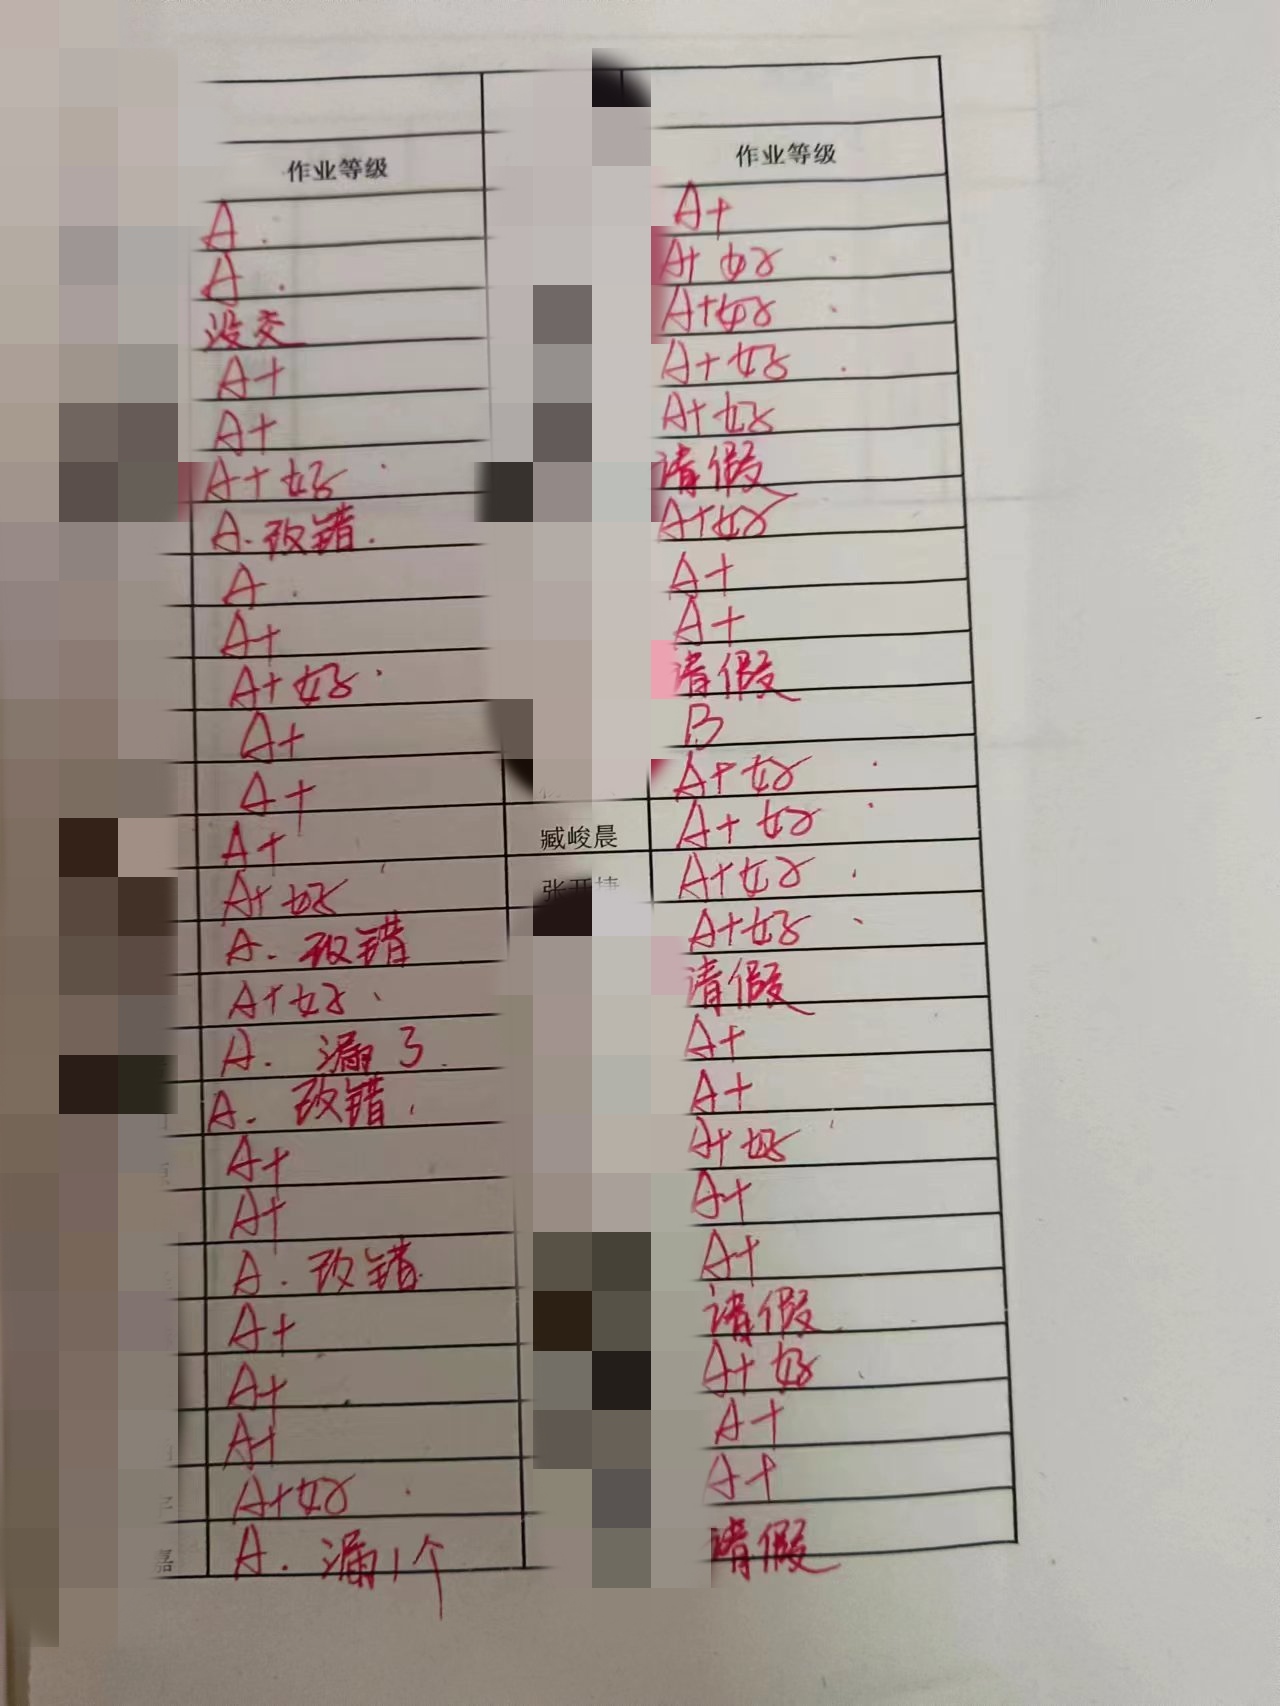 作业等级 作业等级
A. A+
A. A+ 好.
没交 A+好.
A+ A+ 好.
A+ A+ 好
A+ 好. 请假
A. 改错. A+好
A. A+
A+ A+
A+ 好. 请假
A+ B
A+ A+ 好.
A+ 臧峻晨 A+ 好.
A+ 好 张开捷 A+好.
A. 改错 A+好.
A+好. 请假
A. 漏3. A+
A. 改错. A+
A+ A+ 好
A+ A+
A. 改错. A+
A+ 请假.
A+ A+ 好
A+ A+
A+好. A+
嘉 A. 漏1个 请假